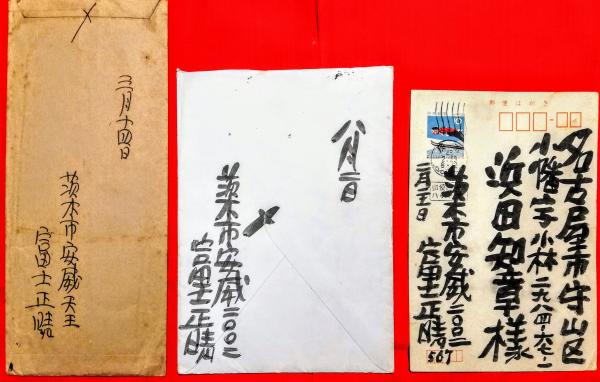 月十四日
茨木市安威天王
富士正晴
八月二日
茨木市安威二〇〇二
富士正晴
郵便はがき
名古屋市守山区
小幡字小林二九八四-六七-一
浜田知章様
茨木市安威二〇〇二
富士正晴
567